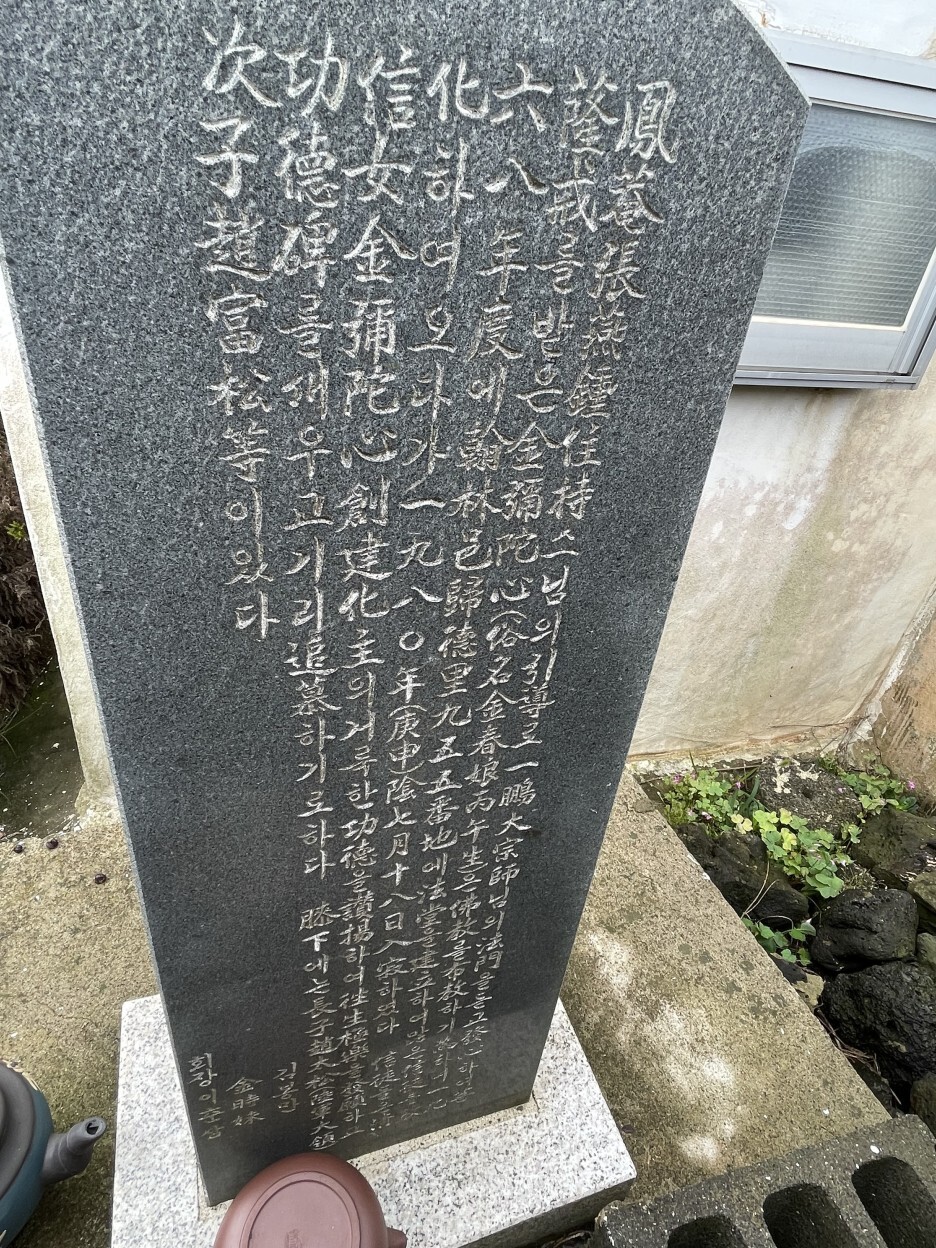 鳳菴張燕鍾住持스님의引導로一鵬大宗師님의法門을듣고發心하여菩
薩戒를받은金彌陀心(俗名金春娘丙午生)은佛敎를布敎하기위하여一九
六八年度에翰林邑歸德里九五五番地에法堂을建立하여많은信徒를敎
化하여오다가一九八〇年(庚申)陰七月十八日入寂하였다 信徒들은淸
信女金彌陀心創建化主의거룩한功德을讚揚하여往生極樂을發願하고
功德碑를새우고기리追慕하기로하다 膝下에는長子趙太松陸軍大領
次子趙富松等이있다
金時妹
회장